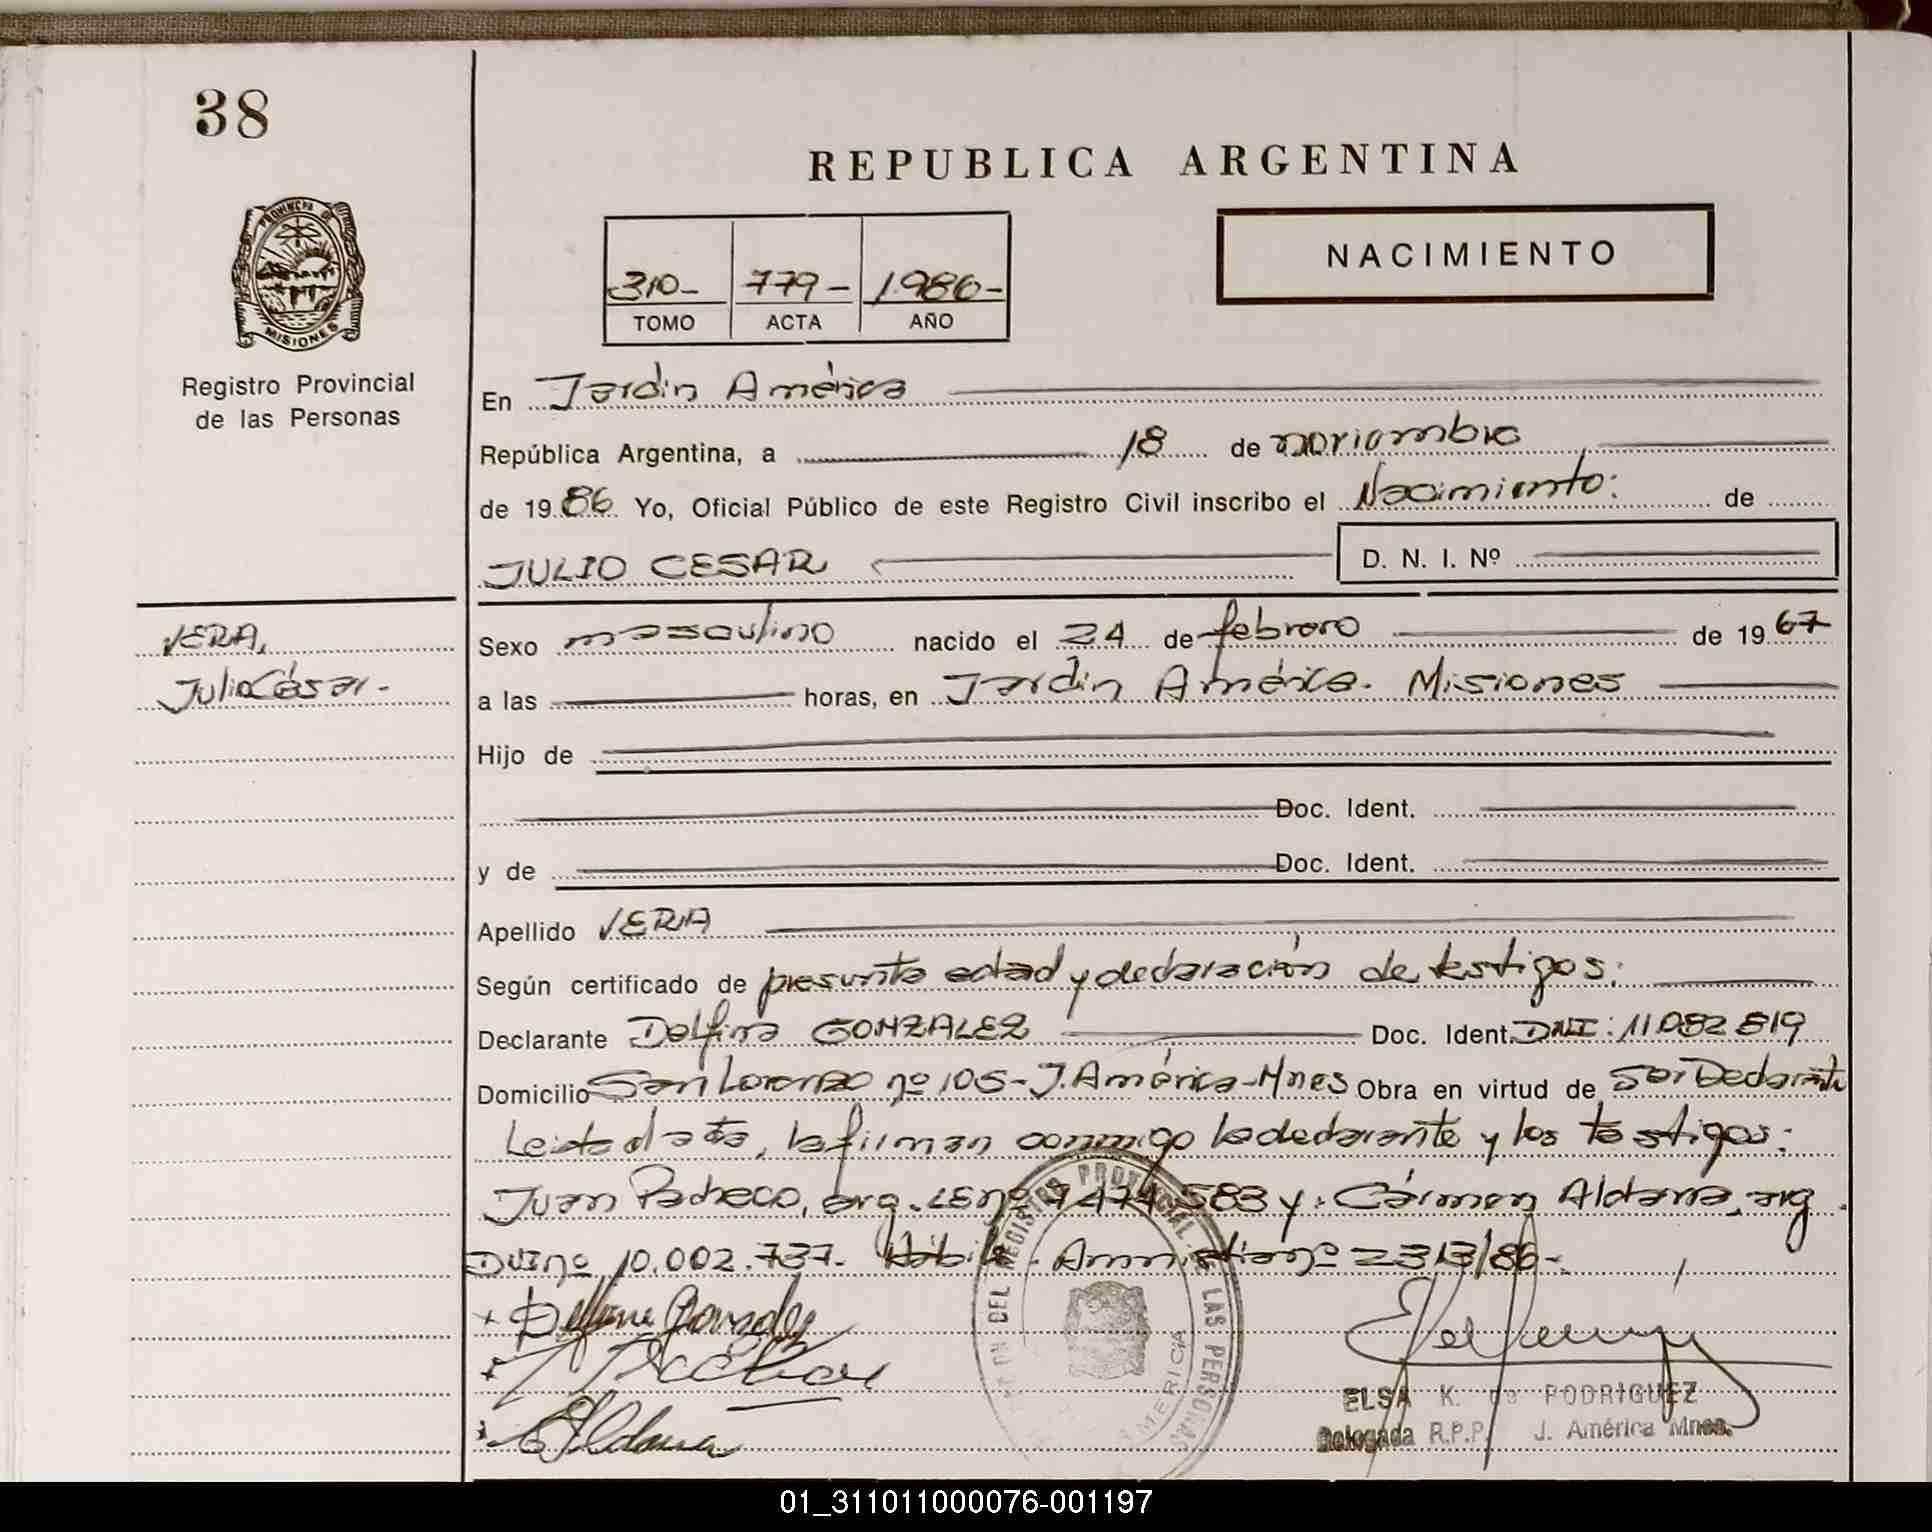 38
REPUBLICA ARGENTINA
PROVINCIA DE
MISIONES
310- 779- 1.986-
TOMO ACTA AÑO
NACIMIENTO
Registro Provincial
de las Personas
En Jardin América
República Argentina, a 18 de noviembre
de 1986 Yo, Oficial Público de este Registro Civil inscribo el Nacimiento: de
JULIO CESAR D. N. I. Nº
VERA,
Julio César.-
Sexo masculino nacido el 24 de febrero de 1967
a las horas, en Jardin América. Misiones
Hijo de
Doc. Ident.
y de Doc. Ident.
Apellido VERA
Según certificado de presunta edad y declaración de testigos:
Declarante Delfina GONZALEZ Doc. Ident. DNI: 11.082.819
Domicilio San Lorenzo nº 105-J. América-Mnes Obra en virtud de Ser Declarante
Leida el acta, la firman conmigo la declarante y los testigos:
Juan Pacheco, arg. LE nº 7.474.583 y: Cármen Aldana, arg.
DNI nº 10.002.737. Amnistia nº 2313/86-.
DEL REGISTRO PROVINCIAL DE LAS PERSONAS
AMERICA
ELSA K. de RODRIGUEZ
Delegada R.P.P. J. América Mnes.
01_311011000076-001197